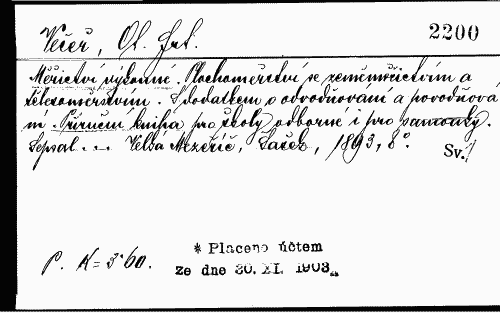 Večeř, Ot. Jar.
2200
Měřictví výkonné. Plochoměřství se zeměměřictvím a
tělesoměřstvím. S dodatkem o odvodňování a povodňová
ní. Příruční kniha pro školy odborné i pro samouky.
Sepsal ... Velká Mezeříč, Šašek, 1893, 8°.
Sv. 1
P. K = 3·60.
* Placeno účtem
ze dne 30. XI. 1903